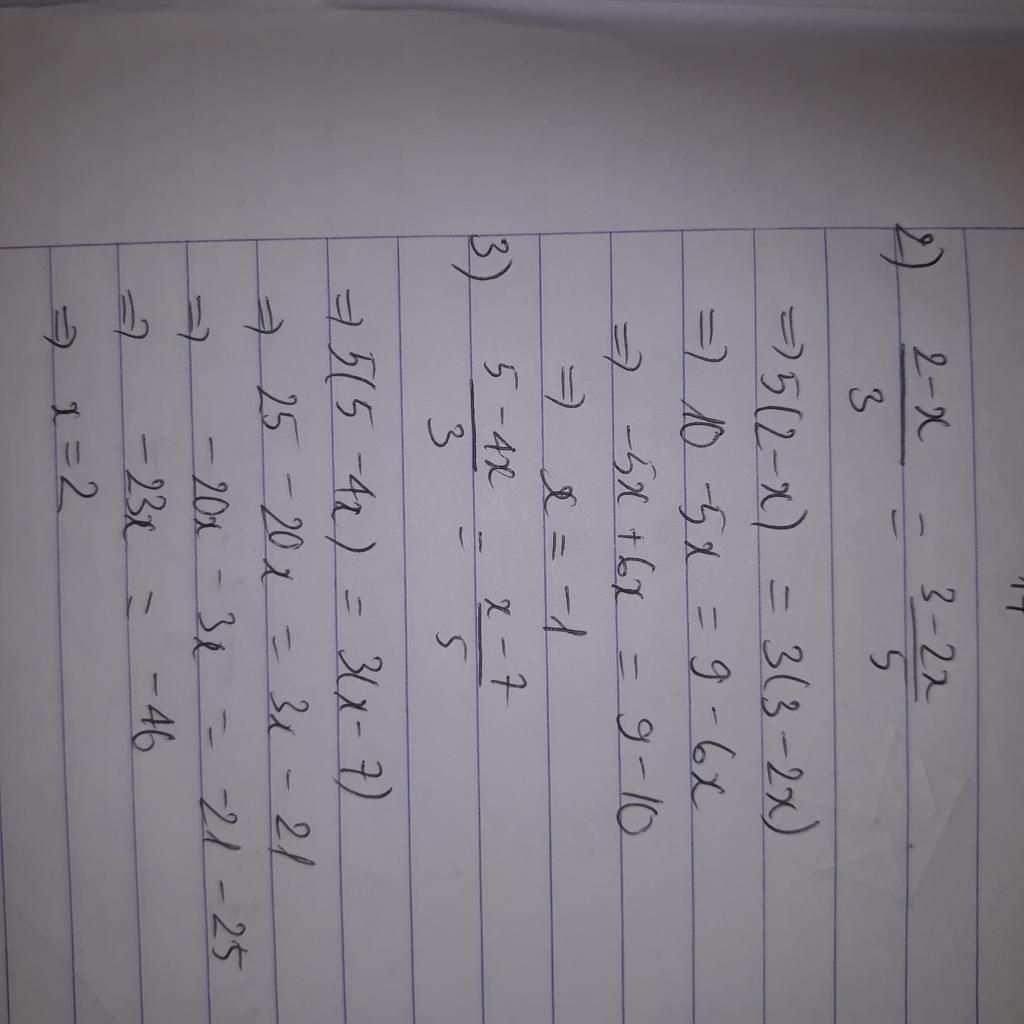 2) 2-x/3 = 3-2x/5
=> 5(2-x) = 3(3-2x)
=> 10 -5x = 9 - 6x
=> -5x + 6x = 9-10
=> x = -1
3) 5-4x/3 = x-7/5
=> 5(5-4x) = 3(x-7)
=> 25 - 20x = 3x - 21
=> -20x - 3x = -21 - 25
=> -23x = -46
=> x = 2